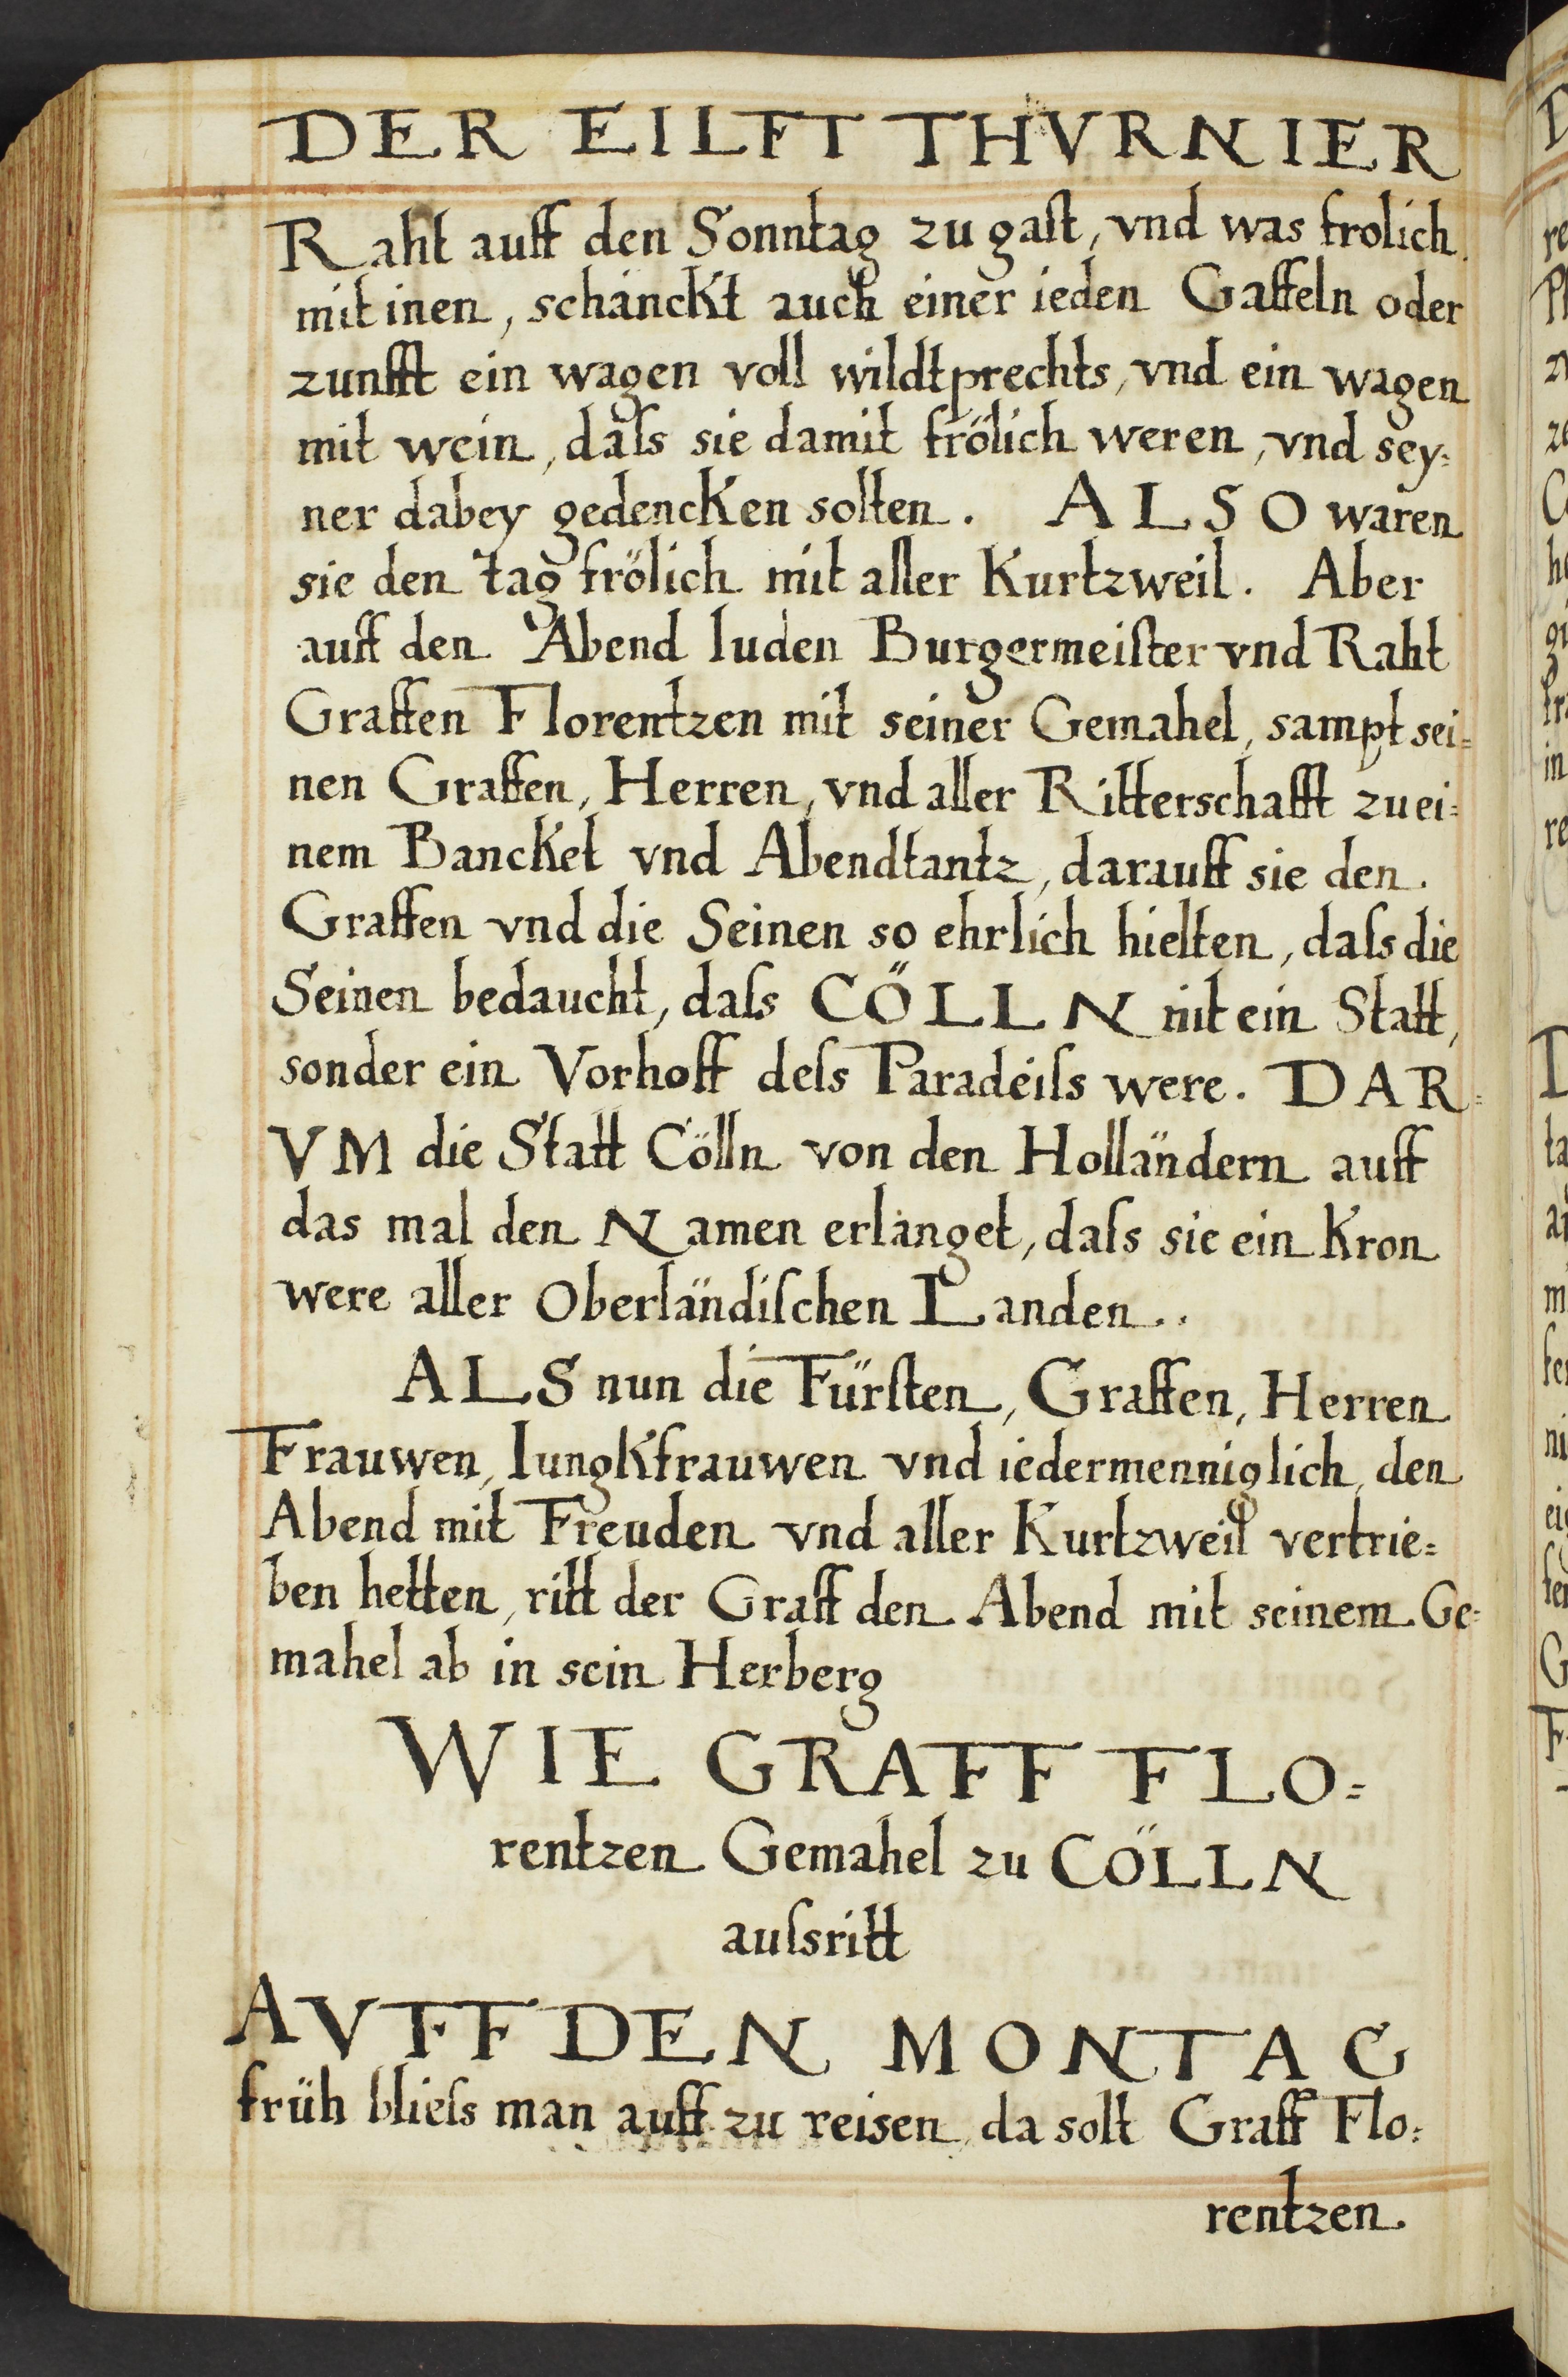 DER EILFT THVRNIER
Raht auff den Sonntag zu gaſt, vnd was frolich
mit inen, schänckt auch einer ieden Gaffeln oder
zunfft ein wagen voll wildtprechts, vnd ein wagen
mit wein, daſs sie damit frölich weren, vnd sey=
ner dabey gedencken solten. ALSO waren
sie den tag frölich mit aller Kurtzweil. Aber
auff den Abend luden Burgermeiſter vnd Raht
Graffen Florentzen mit seiner Gemahel, sampt sei=
nen Graffen, Herren, vnd aller Ritterschafft zu ei=
nem Bancket vnd Abendtantz, darauff sie den
Graffen vnd die Seinen so ehrlich hielten, daſs die
Seinen bedaucht, daſs CÖLLN nit ein Statt,
sonder ein Vorhoff deſs Paradeiſs were. DAR=
VM die Statt Cölln von den Holländern auff
das mal den Namen erlanget, daſs sie ein Kron
were aller Oberländiſchen Landen..
ALS nun die Fürſten, Graffen, Herren
Frauwen, Iungkfrauwen vnd iedermenniglich, den
Abend mit Freuden vnd aller Kurtzweil vertrie=
ben hetten, ritt der Graff den Abend mit seinem Ge=
mahel ab in sein Herberg
WIE GRAFF FLO=
rentzen Gemahel zu CÖLLN
auſsritt
AVFF DEN MONTAG
früh blieſs man auff zu reisen, da solt Graff Flo=
rentzen.